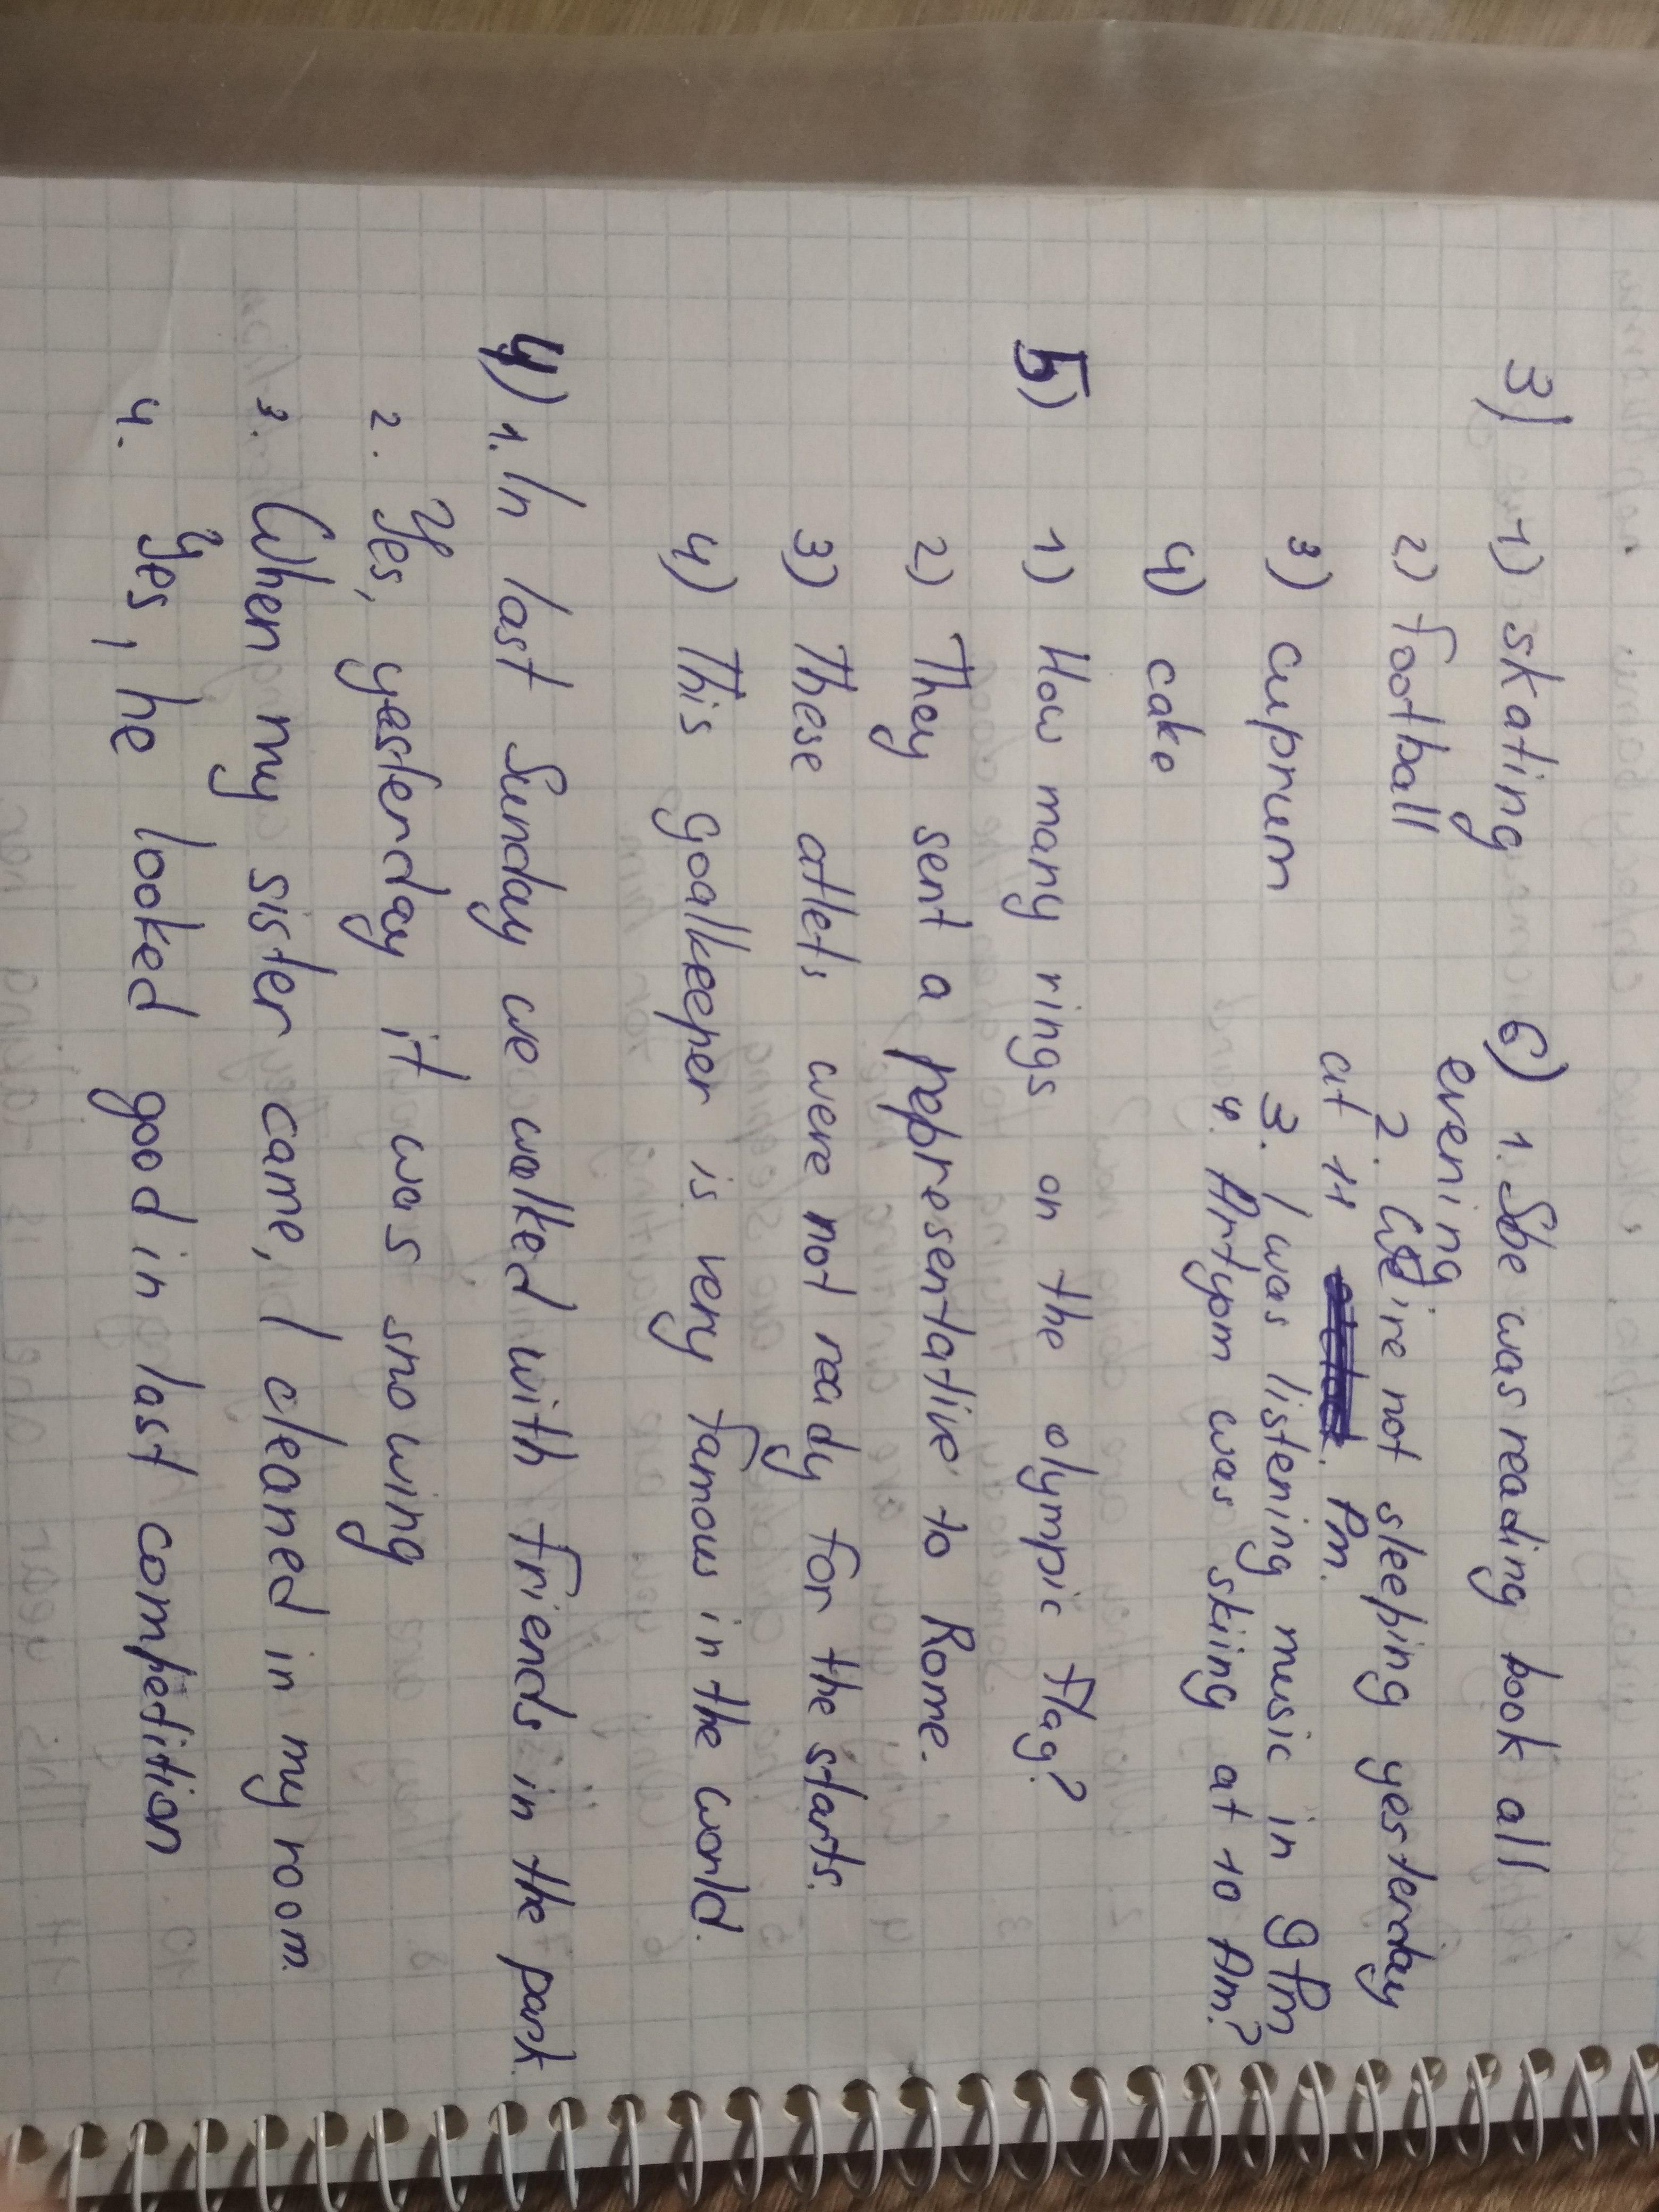 3)
1) skating
2) football
3) cuprum
4) cake
6) 1. She was reading book all
evening
2. We're not sleeping yesterday
at 11 Pm.
3. I was listening music in 9 Pm
4. Artyom was skiing at 10 Am?
5)
1) How many rings on the olympic flag?
2) They sent a representative to Rome.
3) These atlets were not ready for the starts.
4) This goalkeeper is very famous in the world.
4) 1. In last Sunday we walked with friends in the park.
2. Yes, yesterday it was snowing
3. When my sister came, I cleaned in my room.
4. Yes, he looked good in last compedition